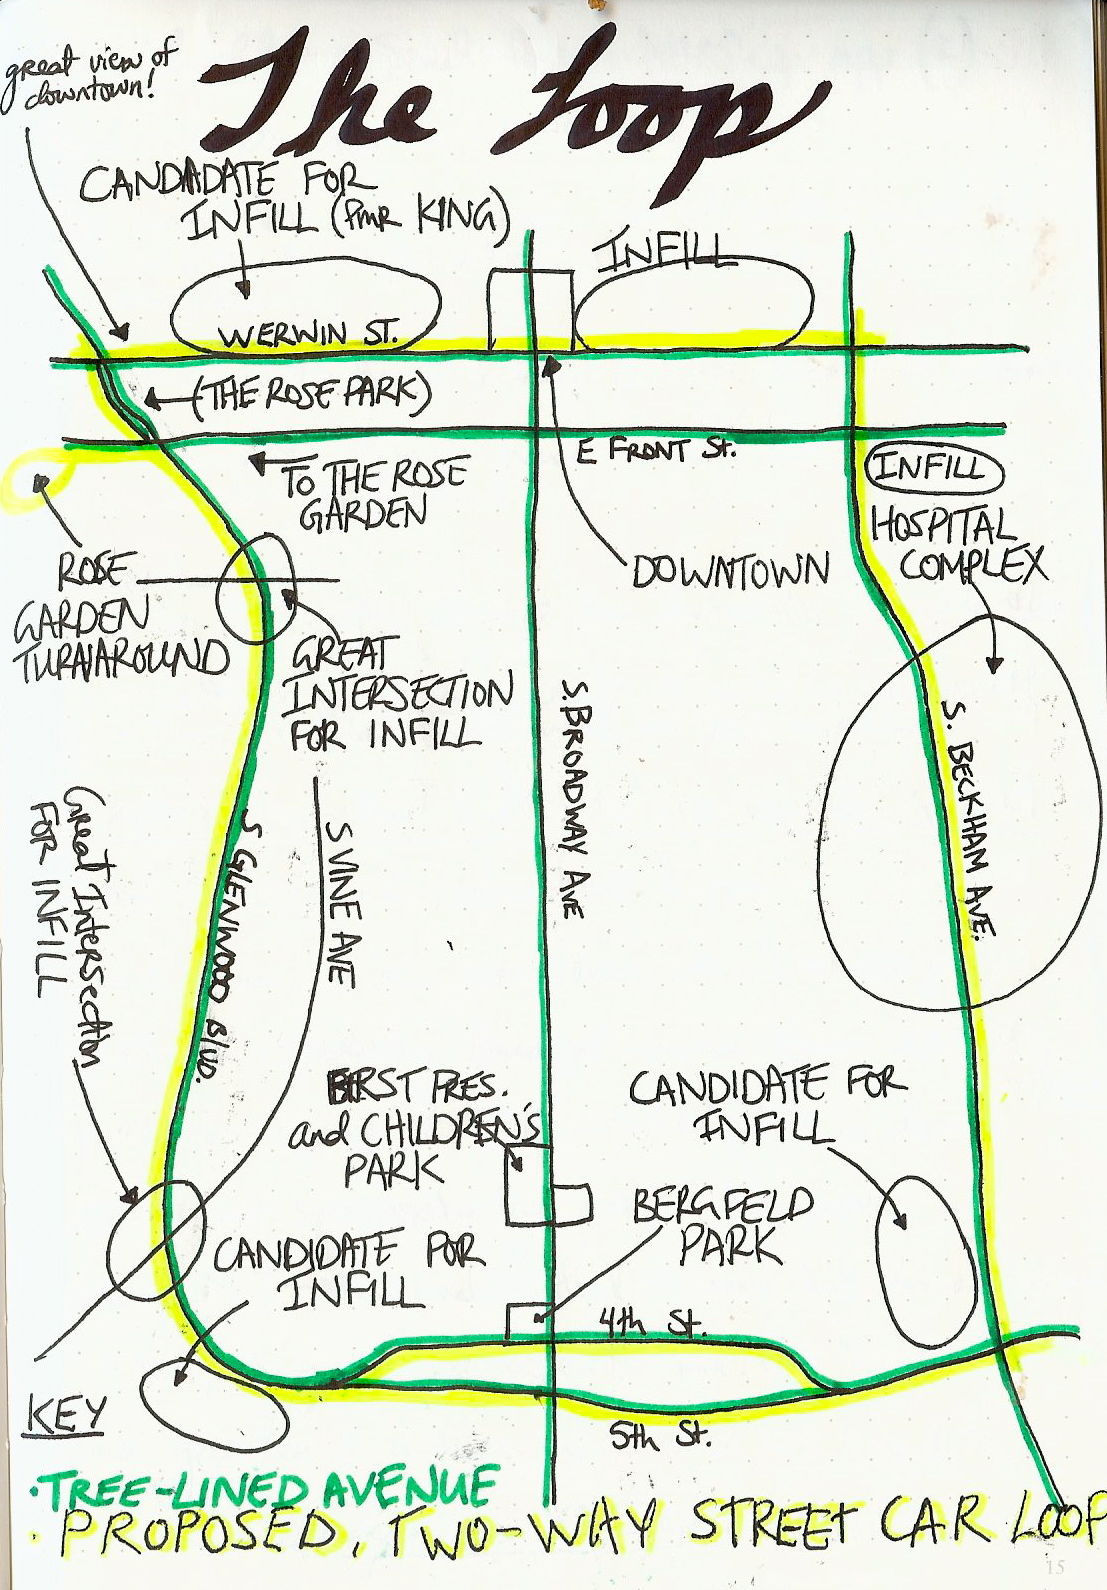 The Loop
great view of
downtown!
CANDADATE FOR
INFILL (PMR KING)
INFILL
WERWIN ST.
(THE ROSE PARK)
E FRONT St.
TO THE ROSE
GARDEN
INFILL
HOSPITAL
COMPLEX
DOWNTOWN
ROSE
GARDEN
TURNAROUND
GREAT
INTERSECTION
FOR INFILL
S. BROADWAY AVE
S. BECKHAM AVE.
Great Intersection
FOR INFILL
S GLENWOOD Blvd.
S VINE AVE
FIRST PRES.
and CHILDREN'S
PARK
CANDIDATE FOR
INFILL
BERGFELD
PARK
CANDIDATE FOR
INFILL
4th St.
5th St.
KEY
·TREE-LINED AVENUE
·PROPOSED, TWO-WAY STREET CAR LOOP
15